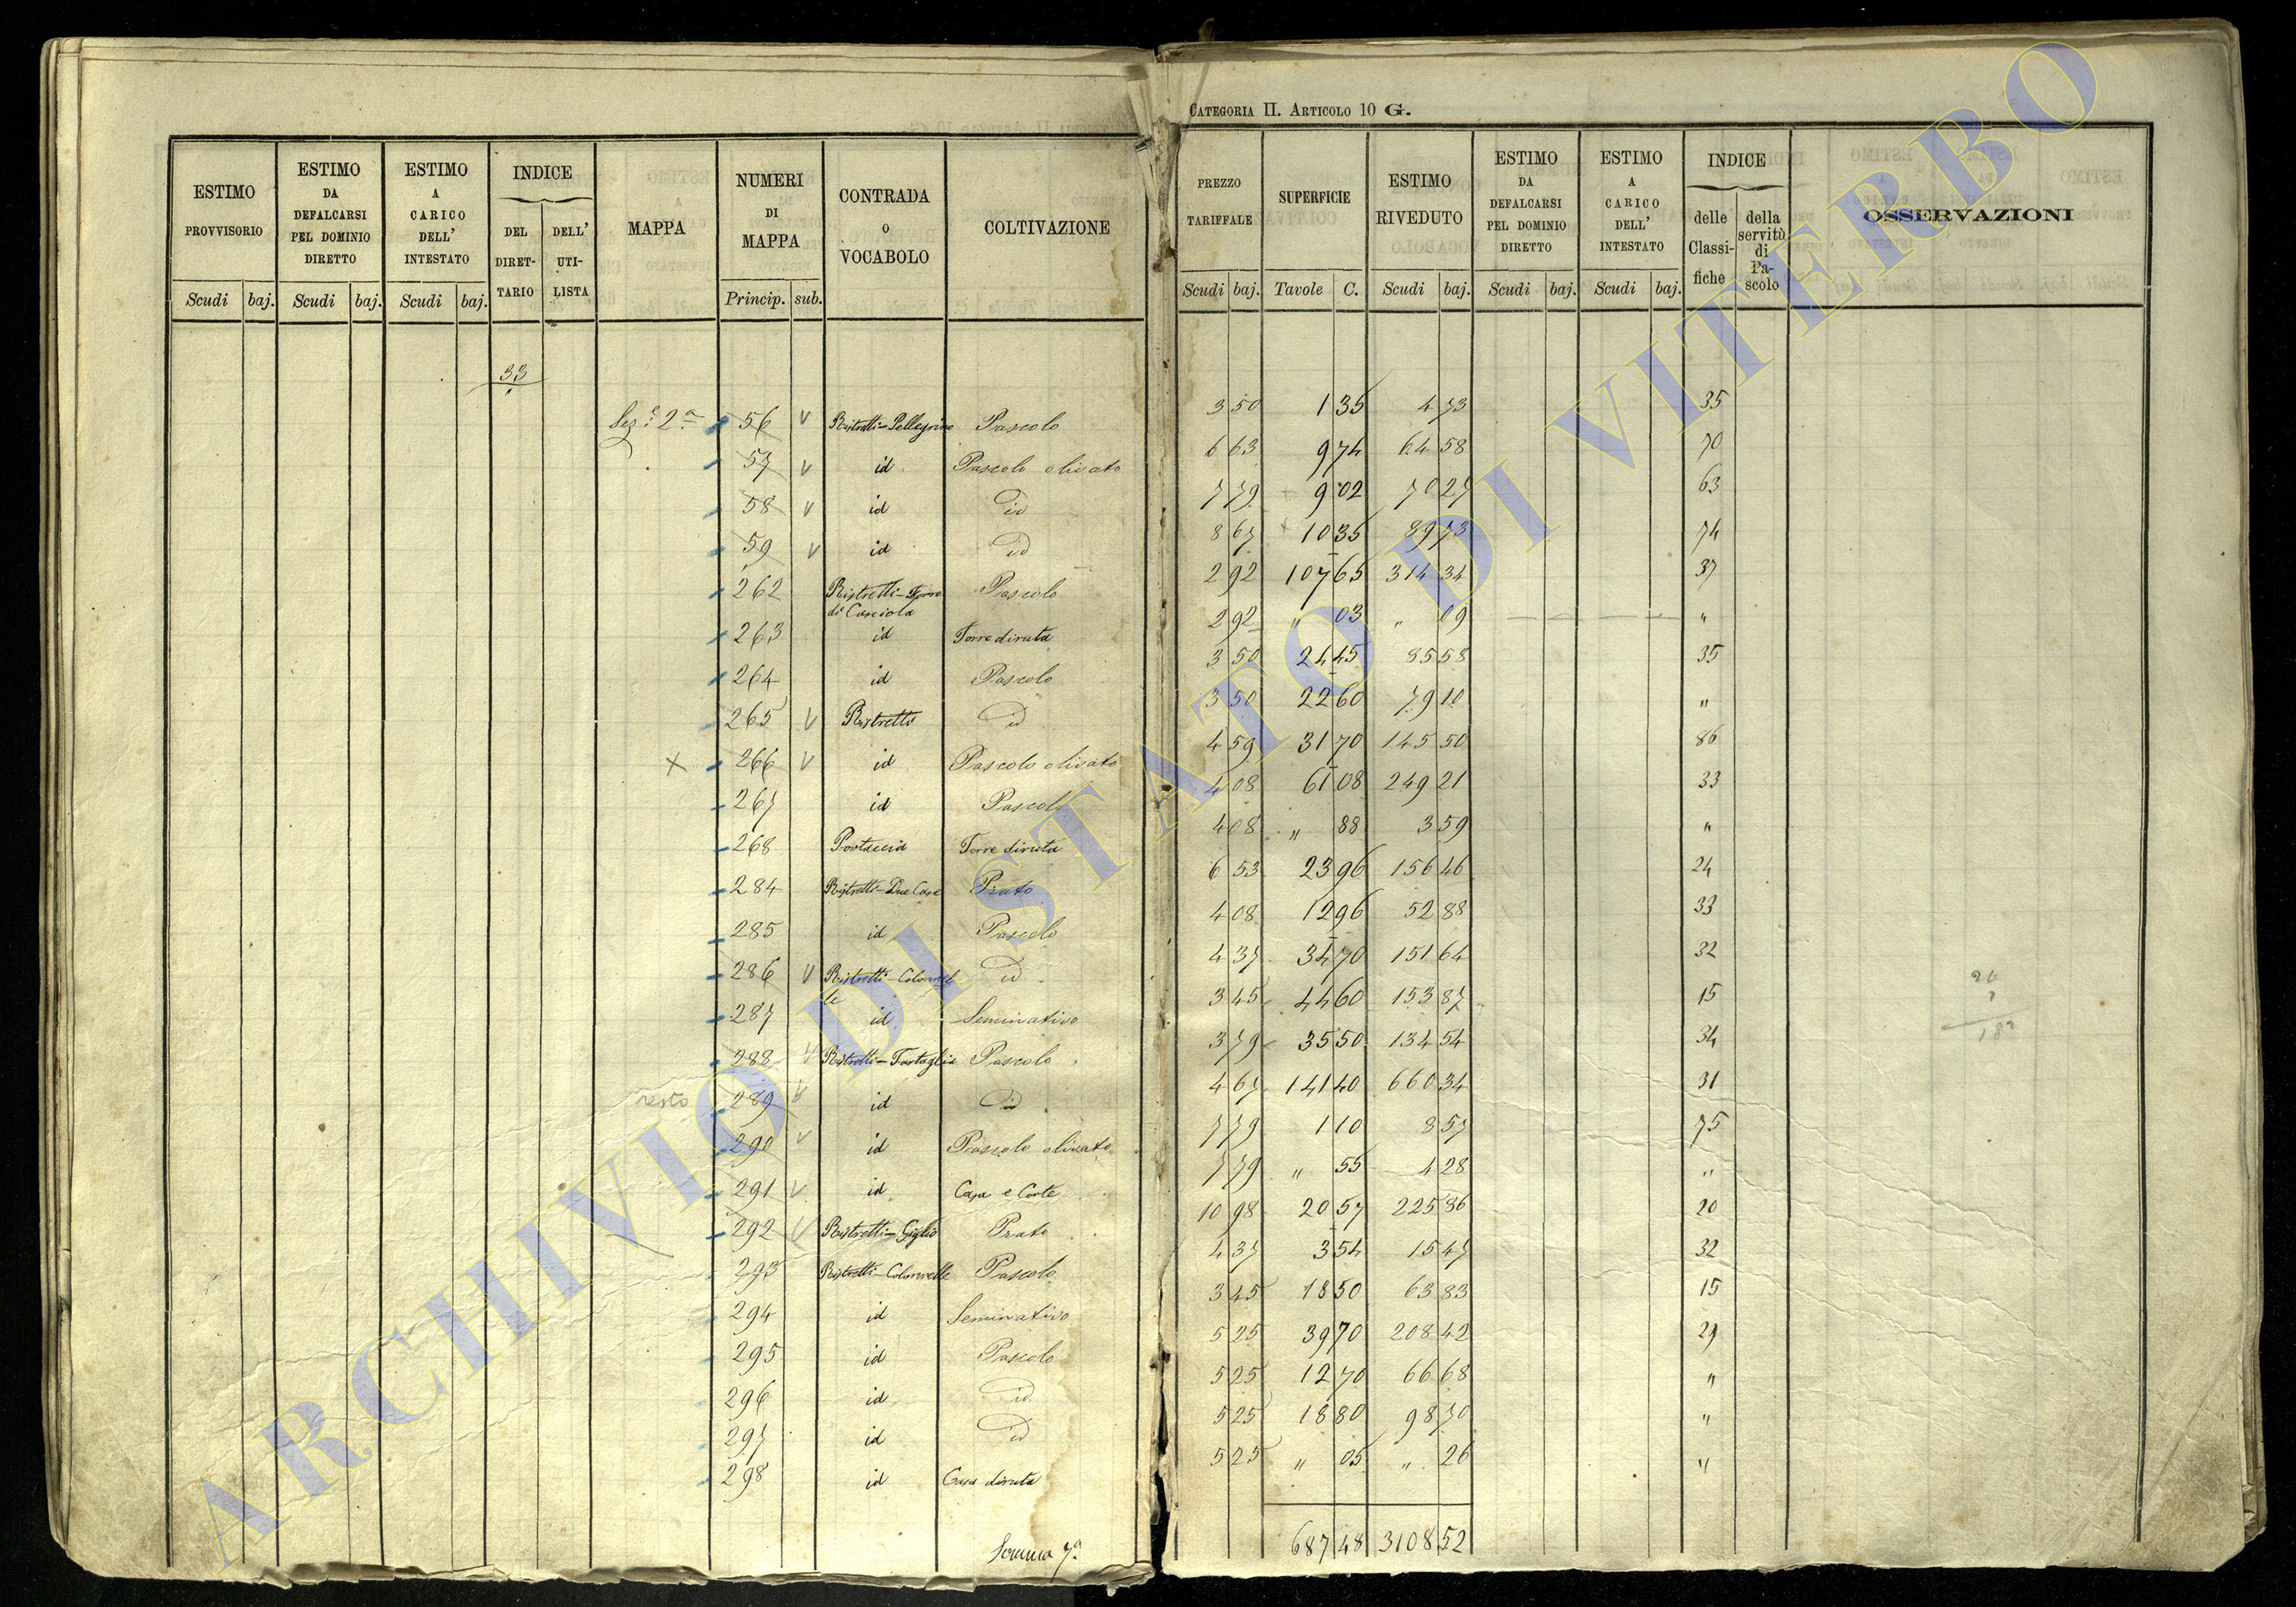 CATEGORIA II. ARTICOLO 10 G.
ESTIMO PROVVISORIO Scudi baj. ESTIMO DA DEFALCARSI PEL DOMINIO DIRETTO Scudi baj. ESTIMO A CARICO DELL' INTESTATO Scudi baj. INDICE DEL DIRETTARIO DELL' UTILISTA MAPPA NUMERI DI MAPPA Princip. sub. CONTRADA O VOCABOLO COLTIVAZIONE
PREZZO TARIFFALE Scudi baj. SUPERFICIE Tavole C. ESTIMO RIVEDUTO Scudi baj. ESTIMO DA DEFALCARSI PEL DOMINIO DIRETTO Scudi baj. ESTIMO A CARICO DELL' INTESTATO Scudi baj. INDICE delle Classifiche della servitù di Pascolo OSSERVAZIONI
33
Sez.e 2a 56 V Ristretti-Pellegrino Pascolo 3 50 1 35 4 73 35
57 V id Pascolo olivato 6 63 9 74 64 58 70
58 V id id 7 79 9 02 70 27 63
59 V id id 8 67 10 35 89 73 74
262 Ristretti-Torre di Casciola Pascolo 2 92 107 65 314 34 37
263 id Torre diruta 2 92 " 03 " 09 "
264 id Pascolo 3 50 24 45 85 58 35
265 V Ristretti id 3 50 22 60 79 10 "
X 266 V id Pascolo olivato 4 59 31 70 145 50 86
267 id Pascolo 4 08 61 08 249 21 33
268 Portaccia Torre diruta 4 08 " 88 3 59 "
284 Ristretti-Due Case Prato 6 53 23 96 156 46 24
285 id Pascolo 4 08 12 96 52 88 33
286 V Ristretti-Colonnelle id 4 37 34 70 151 64 32
287 id Seminativo 3 45 44 60 153 87 15
288 V Ristretti-Tartaglia Pascolo 3 79 35 50 134 54 34
resto 289 V id id 4 67 141 40 660 34 31
290 V id Pascolo olivato 7 79 1 10 8 57 75
291 V id Casa e Corte 7 79 " 55 4 28 "
292 V Ristretti-Giglio Prato 10 98 20 57 225 86 20
293 Ristretti-Colonnelle Pascolo 4 37 3 54 15 47 32
294 id Seminativo 3 45 18 50 63 83 15
295 id Pascolo 5 25 39 70 208 42 29
296 id id 5 25 12 70 66 68 "
297 id id 5 25 18 80 98 70 "
298 id Casa diruta 5 25 " 05 " 26 "
Somma 7a 687 48 3108 52
ARCHIVIO DI STATO DI VITERBO